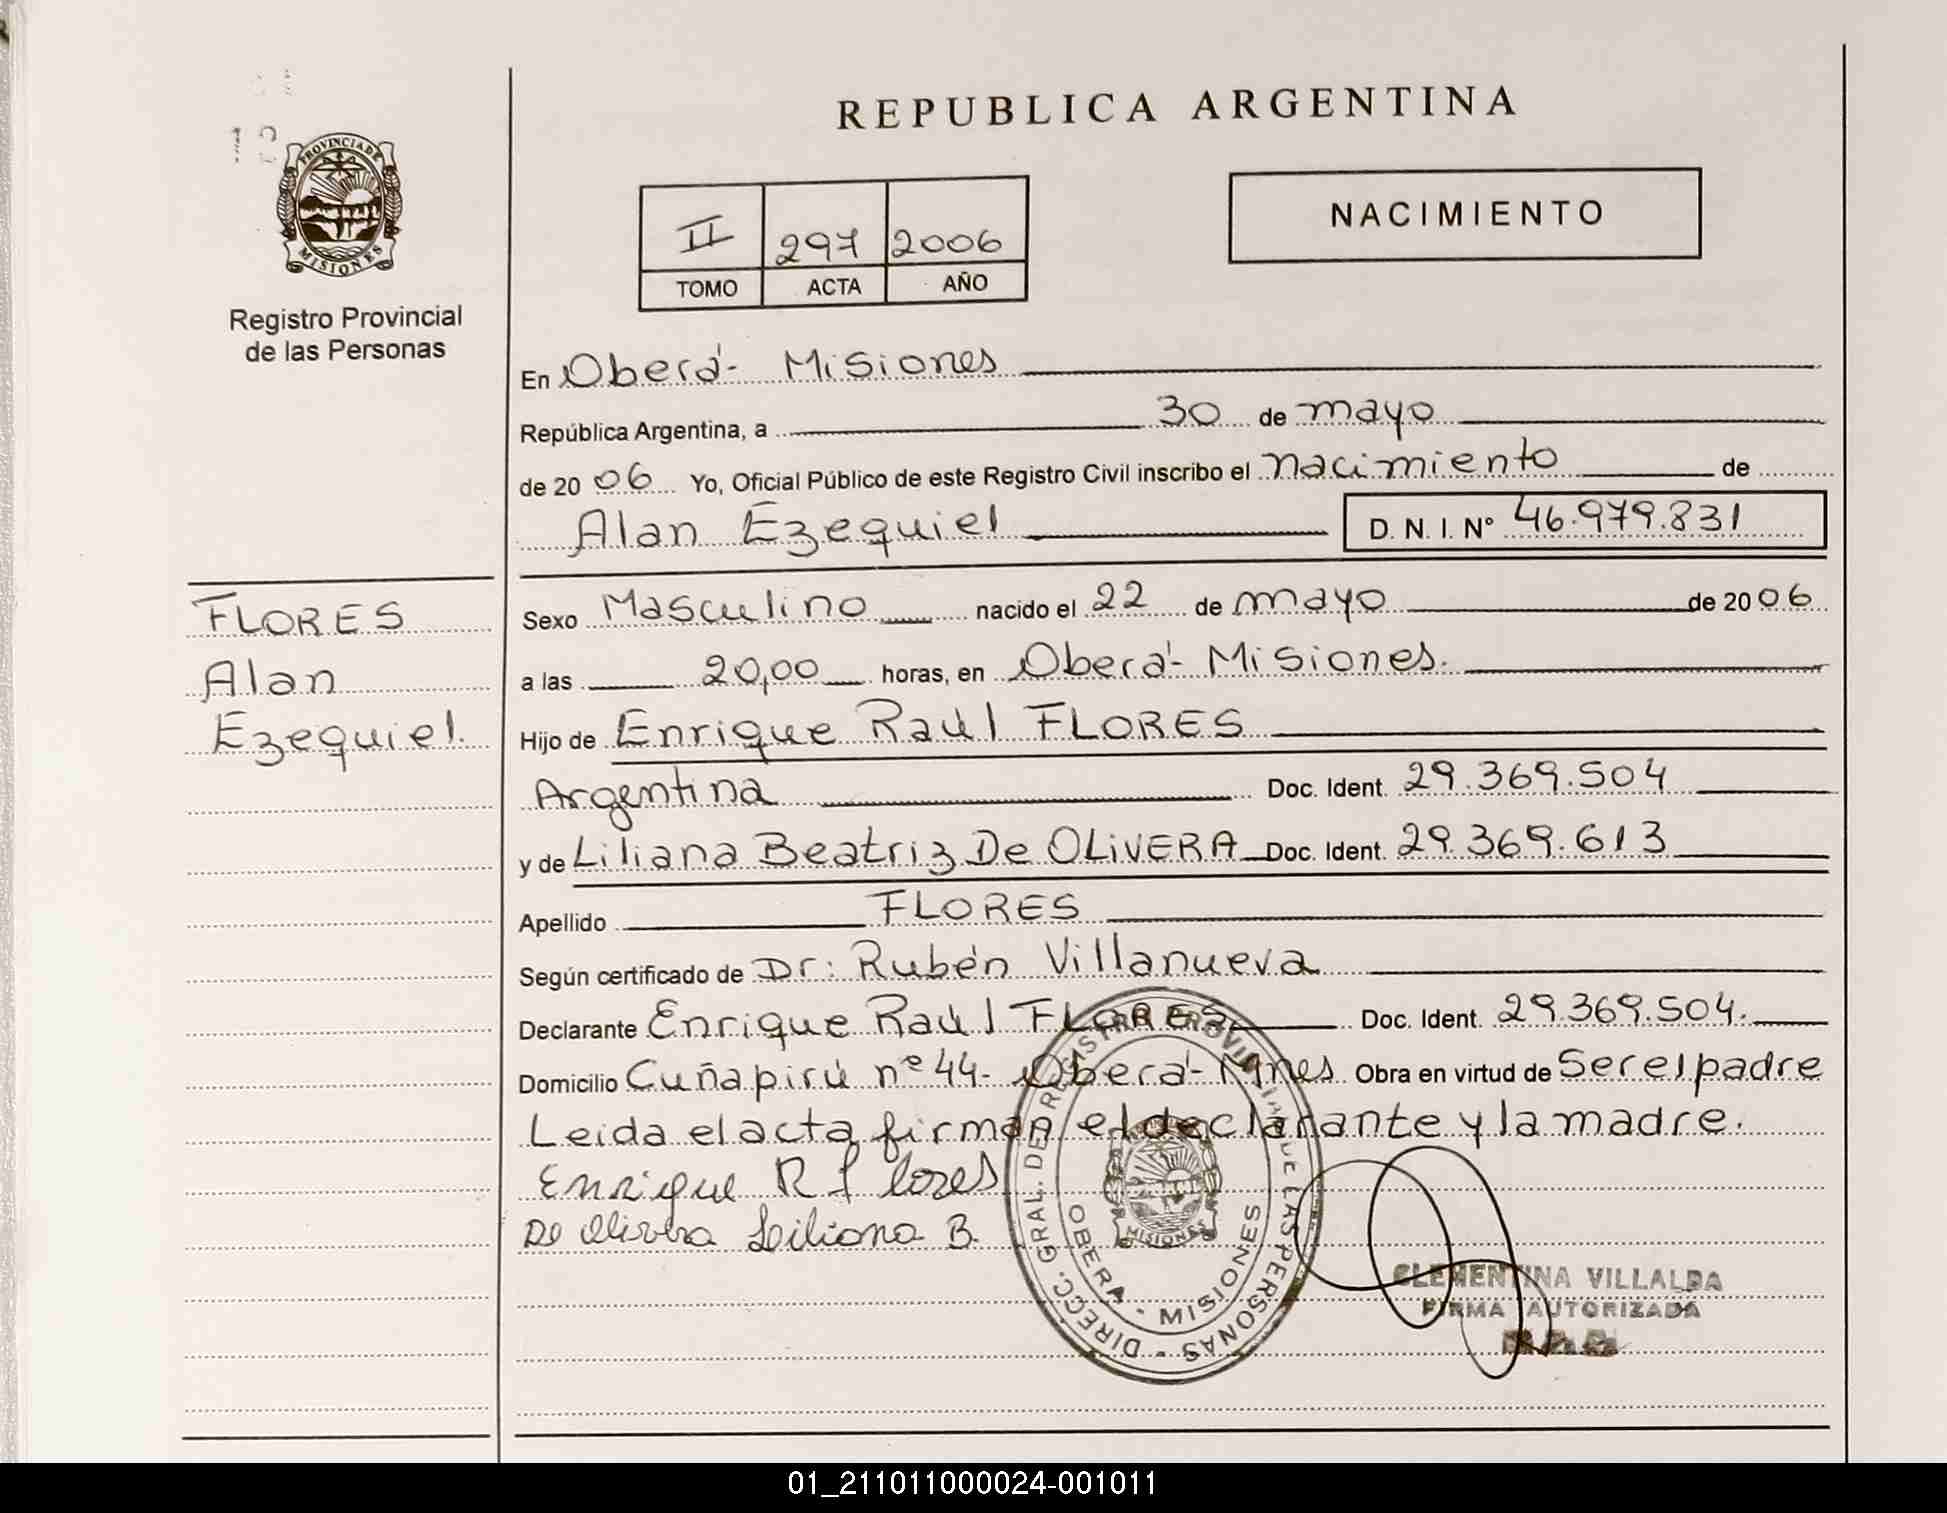 REPUBLICA ARGENTINA
PROVINCIA DE
MISIONES
Registro Provincial
de las Personas
II 297 2006
TOMO ACTA AÑO
NACIMIENTO
En Oberá- Misiones
República Argentina, a 30 de mayo
de 20 06 Yo, Oficial Público de este Registro Civil inscribo el nacimiento de
Alan Ezequiel D. N. I. Nº 46.979.831
FLORES
Alan
Ezequiel.
Sexo Masculino nacido el 22 de mayo de 20 06
a las 20,00 horas, en Oberá- Misiones.
Hijo de Enrique Raúl FLORES
Argentina Doc. Ident. 29.369.504
y de Liliana Beatriz De OLiVERA Doc. Ident. 29.369.613
Apellido FLORES
Según certificado de Dr: Rubén Villanueva
Declarante Enrique Raúl FLORES Doc. Ident. 29.369.504.
Domicilio Cuñapirú nº 44- Oberá- Mnes Obra en virtud de Ser el padre
Leida el acta firman el declarante y la madre.
Enrique R Flores
De Olivera Liliana B.
DIRECC. GRAL. DE REGISTRO PROVINCIAL DE LAS PERSONAS -
OBERA - MISIONES
MISIONES
CLEMENTINA VILLALBA
FIRMA AUTORIZADA
01_211011000024-001011